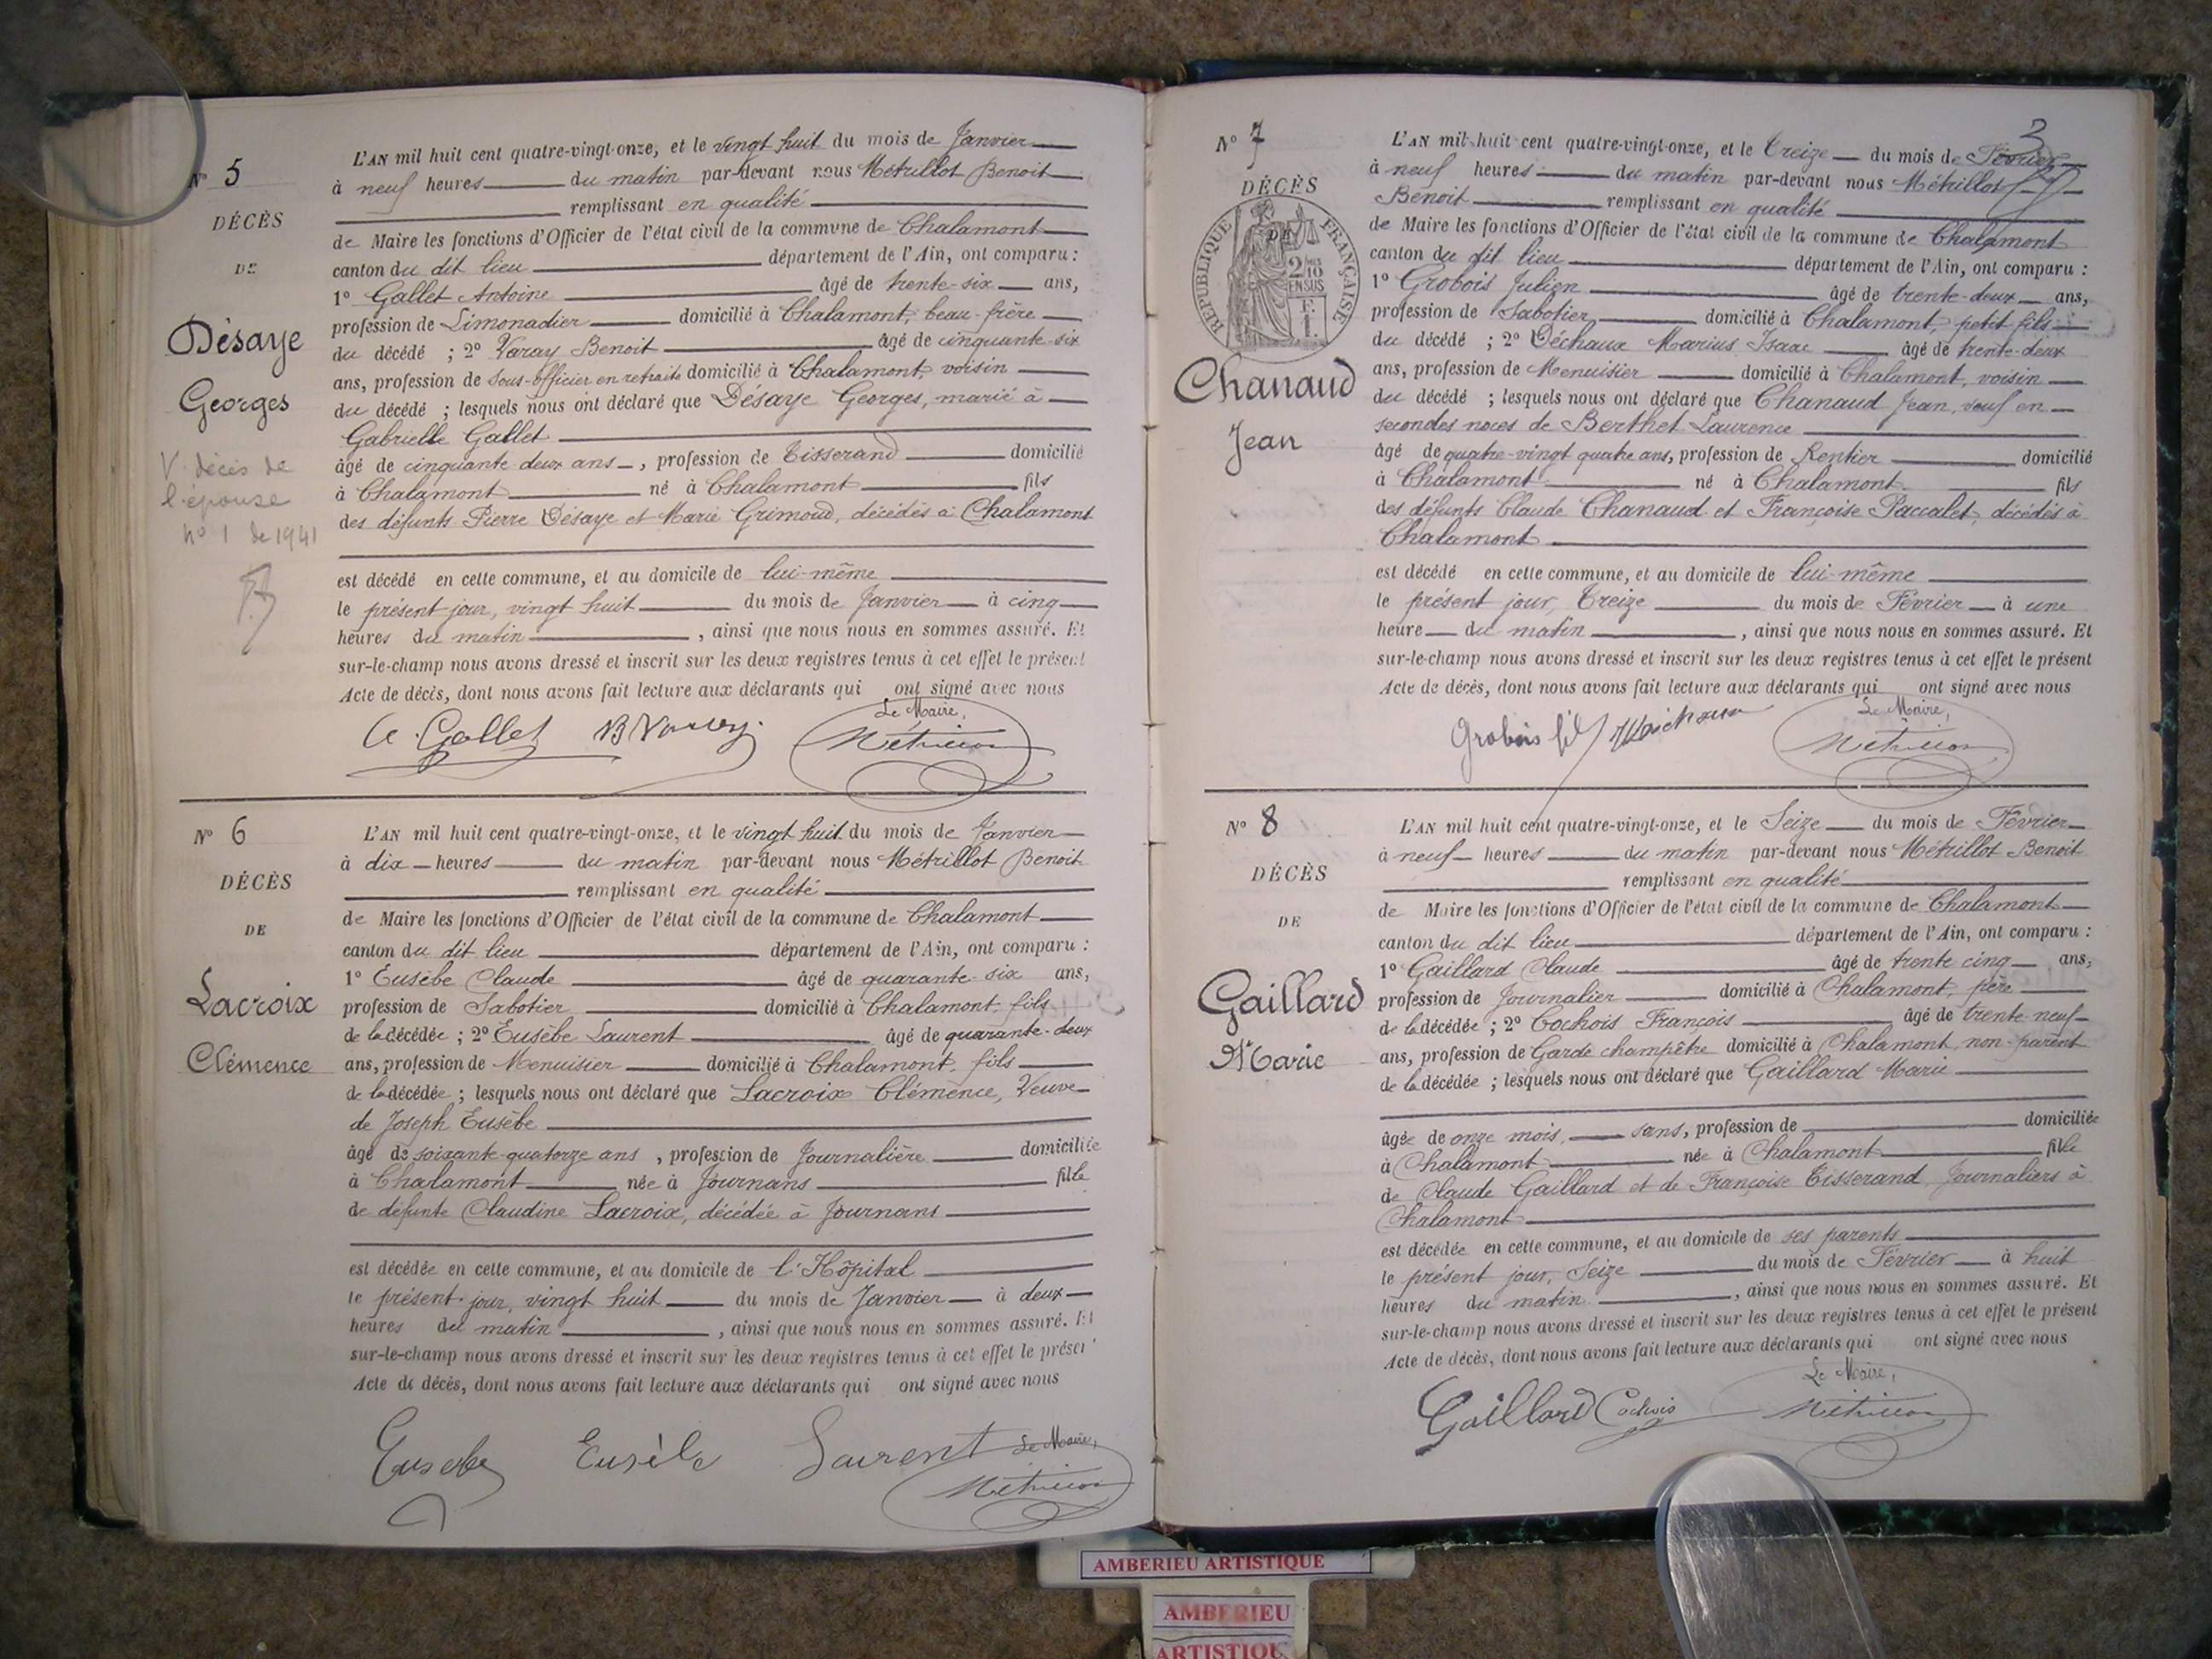 N° 5
DÉCÈS
DE
Désaye
Georges
V. décès de
l'épouse
n° 1 de 1941
L'AN mil huit cent quatre-vingt-onze, et le vingt huit du mois de Janvier
à neuf heures du matin par-devant nous Métrillot Benoit
remplissant en qualité
de Maire les fonctions d'Officier de l'état civil de la commune de Chalamont
canton du dit lieu département de l'Ain, ont comparu :
1° Gallet Antoine âgé de trente-six ans,
profession de Limonadier domicilié à Chalamont, beau-frère
du décédé ; 2° Varay Benoit âgé de cinquante-six
ans, profession de Sous-officier en retraite domicilié à Chalamont, voisin
du décédé ; lesquels nous ont déclaré que Désaye Georges, marié à
Gabrielle Gallet
âgé de cinquante deux ans, profession de Tisserand domicilié
à Chalamont né à Chalamont fils
des défunts Pierre Désaye et Marie Grimoud, décédés à Chalamont
est décédé en cette commune, et au domicile de lui-même
le présent jour, vingt huit du mois de Janvier à cinq
heures du matin, ainsi que nous nous en sommes assuré. Et
sur-le-champ nous avons dressé et inscrit sur les deux registres tenus à cet effet le présent
Acte de décès, dont nous avons fait lecture aux déclarants qui ont signé avec nous
Le Maire,
A. Gallet B Varay Métrillot
N° 6
DÉCÈS
DE
Lacroix
Clémence
L'AN mil huit cent quatre-vingt-onze, et le vingt huit du mois de Janvier
à dix heures du matin par-devant nous Métrillot Benoit
remplissant en qualité
de Maire les fonctions d'Officier de l'état civil de la commune de Chalamont
canton du dit lieu département de l'Ain, ont comparu :
1° Eusèbe Claude âgé de quarante-six ans,
profession de Sabotier domicilié à Chalamont, fils
de la décédée ; 2° Eusèbe Laurent âgé de quarante-deux
ans, profession de Menuisier domicilié à Chalamont, fils
de la décédée ; lesquels nous ont déclaré que Lacroix Clémence, Veuve
de Joseph Eusèbe
âgé de soixante-quatorze ans, profession de Journalière domiciliée
à Chalamont née à Journans fille
de défunte Claudine Lacroix, décédée à Journans
est décédée en cette commune, et au domicile de l'Hôpital
le présent jour, vingt huit du mois de Janvier à deux
heures du matin, ainsi que nous nous en sommes assuré. Et
sur-le-champ nous avons dressé et inscrit sur les deux registres tenus à cet effet le présent
Acte de décès, dont nous avons fait lecture aux déclarants qui ont signé avec nous
Eusebe Eusèbe Laurent Le Maire,
Métrillot
3
N° 7
DÉCÈS
DE
RÉPUBLIQUE FRANÇAISE
2/10 EN SUS
Chanaud
Jean
L'AN mil huit cent quatre-vingt-onze, et le Treize du mois de Février
à neuf heures du matin par-devant nous Métrillot
Benoit remplissant en qualité
de Maire les fonctions d'Officier de l'état civil de la commune de Chalamont
canton du dit lieu département de l'Ain, ont comparu :
1° Grobois Julien âgé de trente-deux ans,
profession de Sabotier domicilié à Chalamont, petit fils
du décédé ; 2° Déchaux Marius Isaac âgé de trente-deux
ans, profession de Menuisier domicilié à Chalamont, voisin
du décédé ; lesquels nous ont déclaré que Chanaud Jean, veuf en
secondes noces de Berthet Laurence
âgé de quatre-vingt quatre ans, profession de Rentier domicilié
à Chalamont né à Chalamont fils
des défunts Claude Chanaud et Françoise Paccalet, décédés à
Chalamont
est décédé en cette commune, et au domicile de lui-même
le présent jour, Treize du mois de Février à une
heure du matin, ainsi que nous nous en sommes assuré. Et
sur-le-champ nous avons dressé et inscrit sur les deux registres tenus à cet effet le présent
Acte de décès, dont nous avons fait lecture aux déclarants qui ont signé avec nous
Le Maire,
Grobois fils Métrillot
N° 8
DÉCÈS
DE
Gaillard
Marie
L'AN mil huit cent quatre-vingt-onze, et le Seize du mois de Février
à neuf heures du matin par-devant nous Métrillot Benoit
remplissant en qualité
de Maire les fonctions d'Officier de l'état civil de la commune de Chalamont
canton du dit lieu département de l'Ain, ont comparu :
1° Gaillard Claude âgé de trente cinq ans,
profession de Journalier domicilié à Chalamont, père
de la décédée ; 2° Cochois François âgé de trente-neuf
ans, profession de Garde champêtre domicilié à Chalamont, non-parent
de la décédée ; lesquels nous ont déclaré que Gaillard Marie
âgée de onze mois, sans, profession de domiciliée
à Chalamont née à Chalamont fille
de Claude Gaillard et de Françoise Tisserand, Journaliers à
Chalamont
est décédée en cette commune, et au domicile de ses parents
le présent jour, Seize du mois de Février à huit
heures du matin, ainsi que nous nous en sommes assuré. Et
sur-le-champ nous avons dressé et inscrit sur les deux registres tenus à cet effet le présent
Acte de décès, dont nous avons fait lecture aux déclarants qui ont signé avec nous
Le Maire,
Gaillard Cochois Métrillot
AMBERIEU ARTISTIQUE
AMBERIEU
ARTISTIQUE